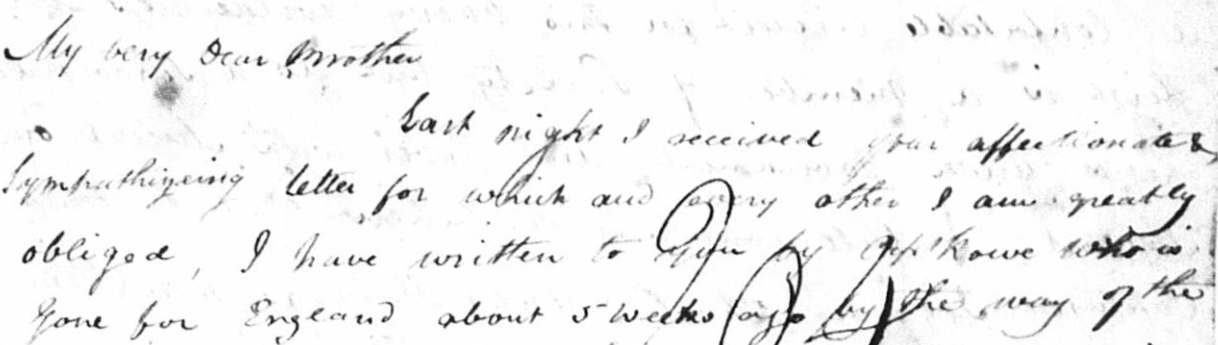 My very Dear Brother
Last night I received your affectionate &
Sympathizeing letter for which and every other I am greatly
obliged, I have written to you by Rowe who is
gone for England about 5 weeks ago by the way of the